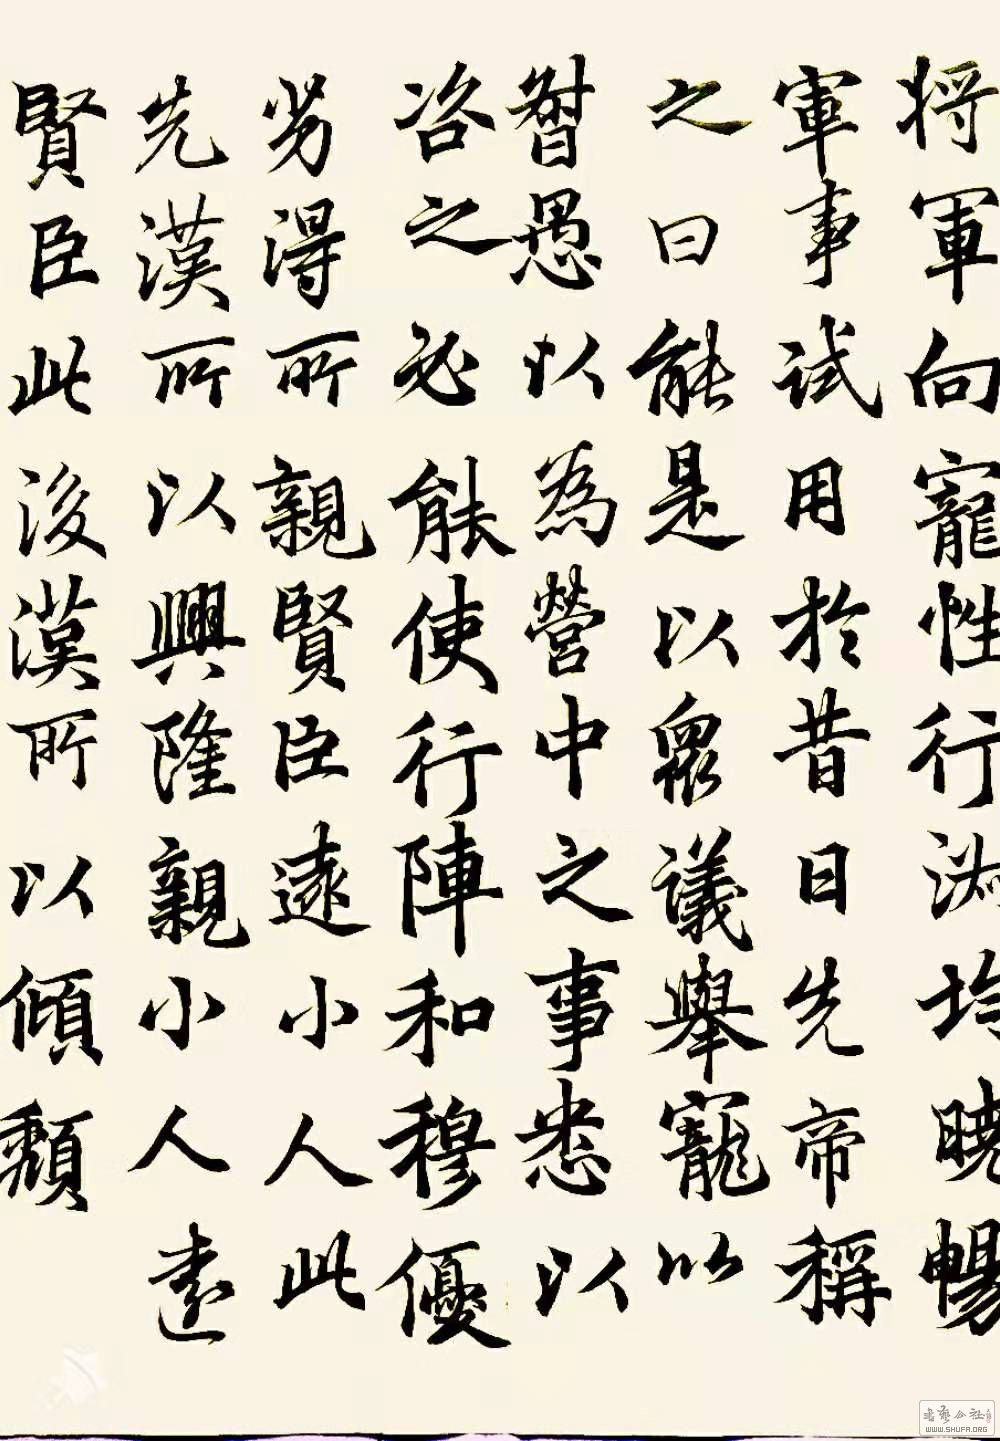 将軍向寵性行淑均曉暢
軍事試用於昔日先帝稱
之曰能是以衆議舉寵以
督愚以為營中之事悉以
咨之必能使行陣和穆優
劣得所親賢臣遠小人此
先漢所以興隆親小人遠
賢臣此後漢所以傾頹
書藝公社
WWW.SHUFA.ORG